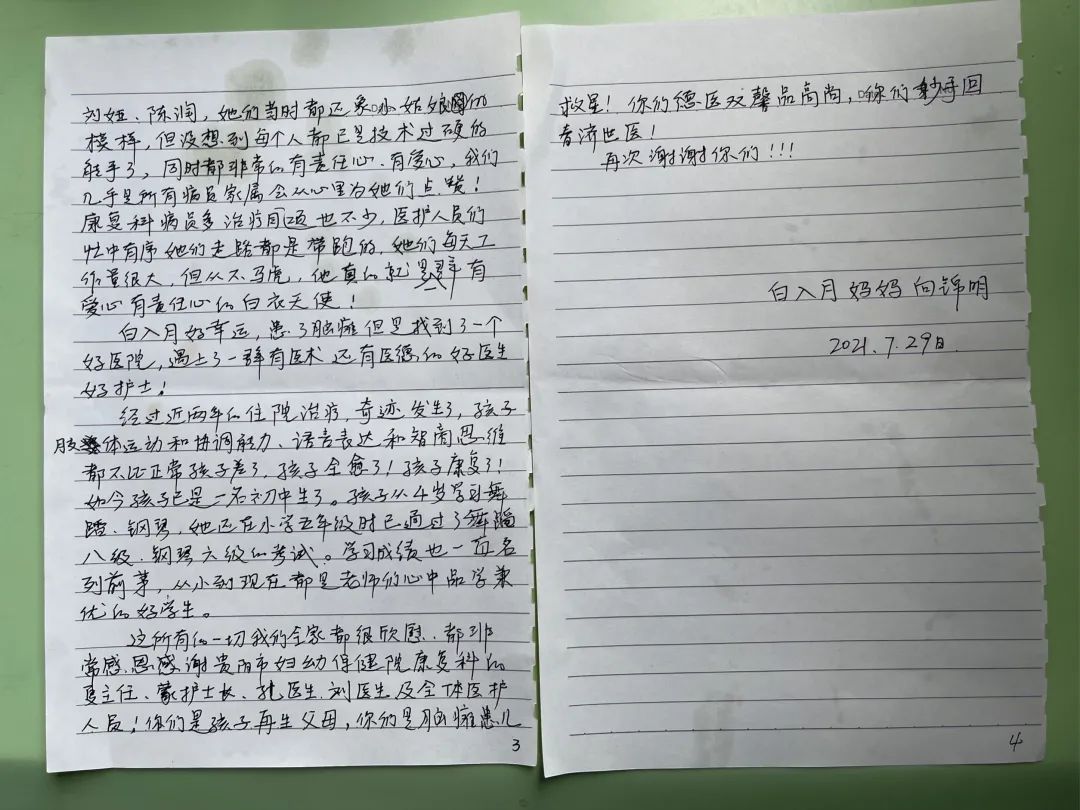 刘娅、陈润，她们当时都还象小姑娘的
模样，但没想到每个人都已是技术过硬的
能手了，同时都非常的有责任心、有爱心，我们
几乎是所有病员家属会从心里为她们点赞！
康复科病员多治疗项目也不少，医护人员们
忙中有序她们走路都是带跑的，她们每天工
作量很大，但从不马虎，他真的就是群有
爱心有责任心的白衣天使！
白入月好幸运，患了脑瘫但是找到了一个
好医院，遇上了一群有医术还有医德的好医生
好护士！
经过近两年的住院治疗，奇迹发生了，孩子
肢体运动和协调能力、语言表达和智商思维
都不比正常孩子差了，孩子全愈了！孩子康复了！
如今孩子已是一名初中生了。孩子从4岁学习舞
蹈、钢琴，她还在小学五年级时已通过了舞蹈
八级、钢琴六级的考试。学习成绩也一直名
列前茅，从小到现在都是老师们心中品学兼
优的好学生。
这所有的一切我的全家都很欣慰、都非
常感恩感谢贵阳市妇幼保健院康复科的
主任、蒙护士长、医生、刘医生及全体医护
人员！你们是孩子再生父母，你们是脑瘫患儿
3
救星！你们德医双馨品高尚，你们妙手回
春济世医！
再次谢谢你们！！！
白入月妈妈 向锦明
2021.7.29日
4